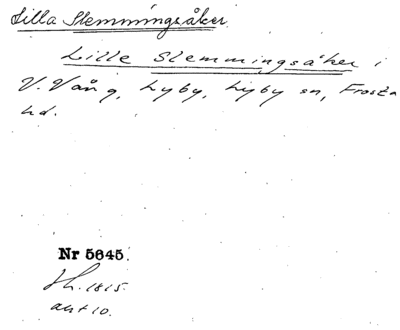 Lilla Slemmingsåker.
Lille Slemmingsåker i
V. Vång, Lyby, Lyby sn, Frosta
hd.
Nr 5645.
Sk. 1815.
akt 10.